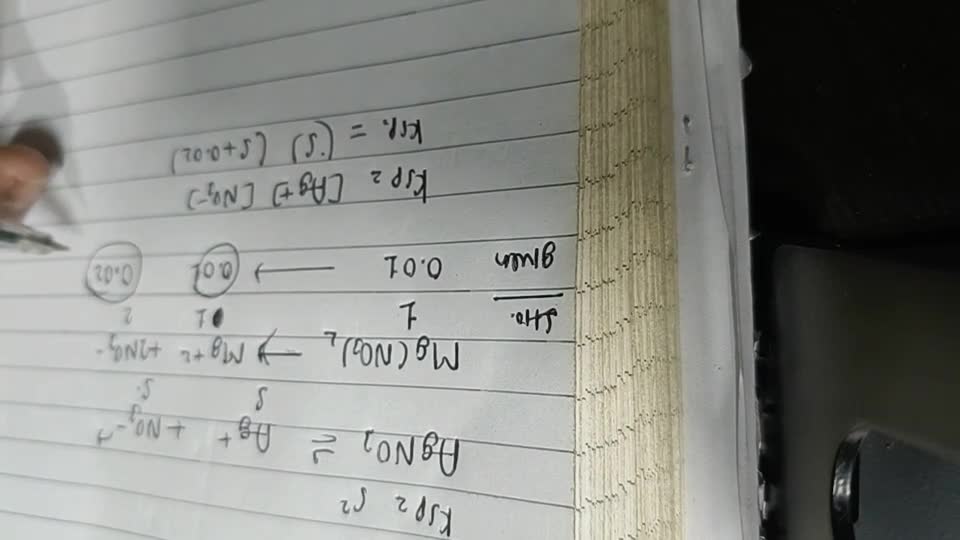 Ksp = s²
AgNO3 ⇌ Ag+ + NO3-
s s
Mg(NO3)2 → Mg+2 + 2NO3-
Sto. 1 1 2
given 0.01 → 0.01 0.02
Ksp = [Ag+] [NO3-]
Ksp. = (s) (s+0.02)